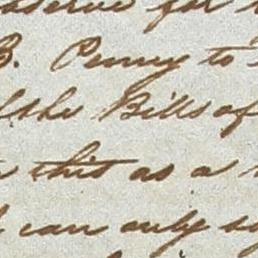 for
B. Penny to
the Bills of
this as a
can only